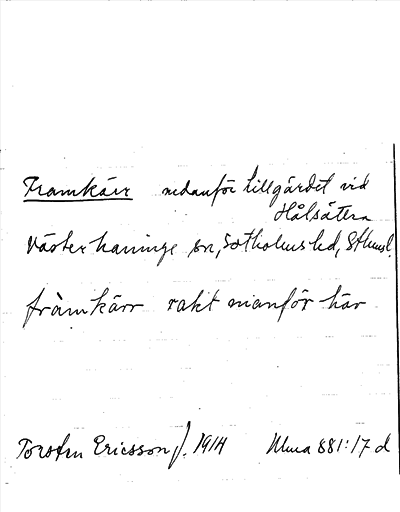 Framkärr nedanför lillgärdet vid
Hålsätra
Västerhaninge sn, Sotholms hd, Sthmsl.
fràmkärr rakt nianför här
Torsten Ericsson f. 1914 Ulma 881:17 d